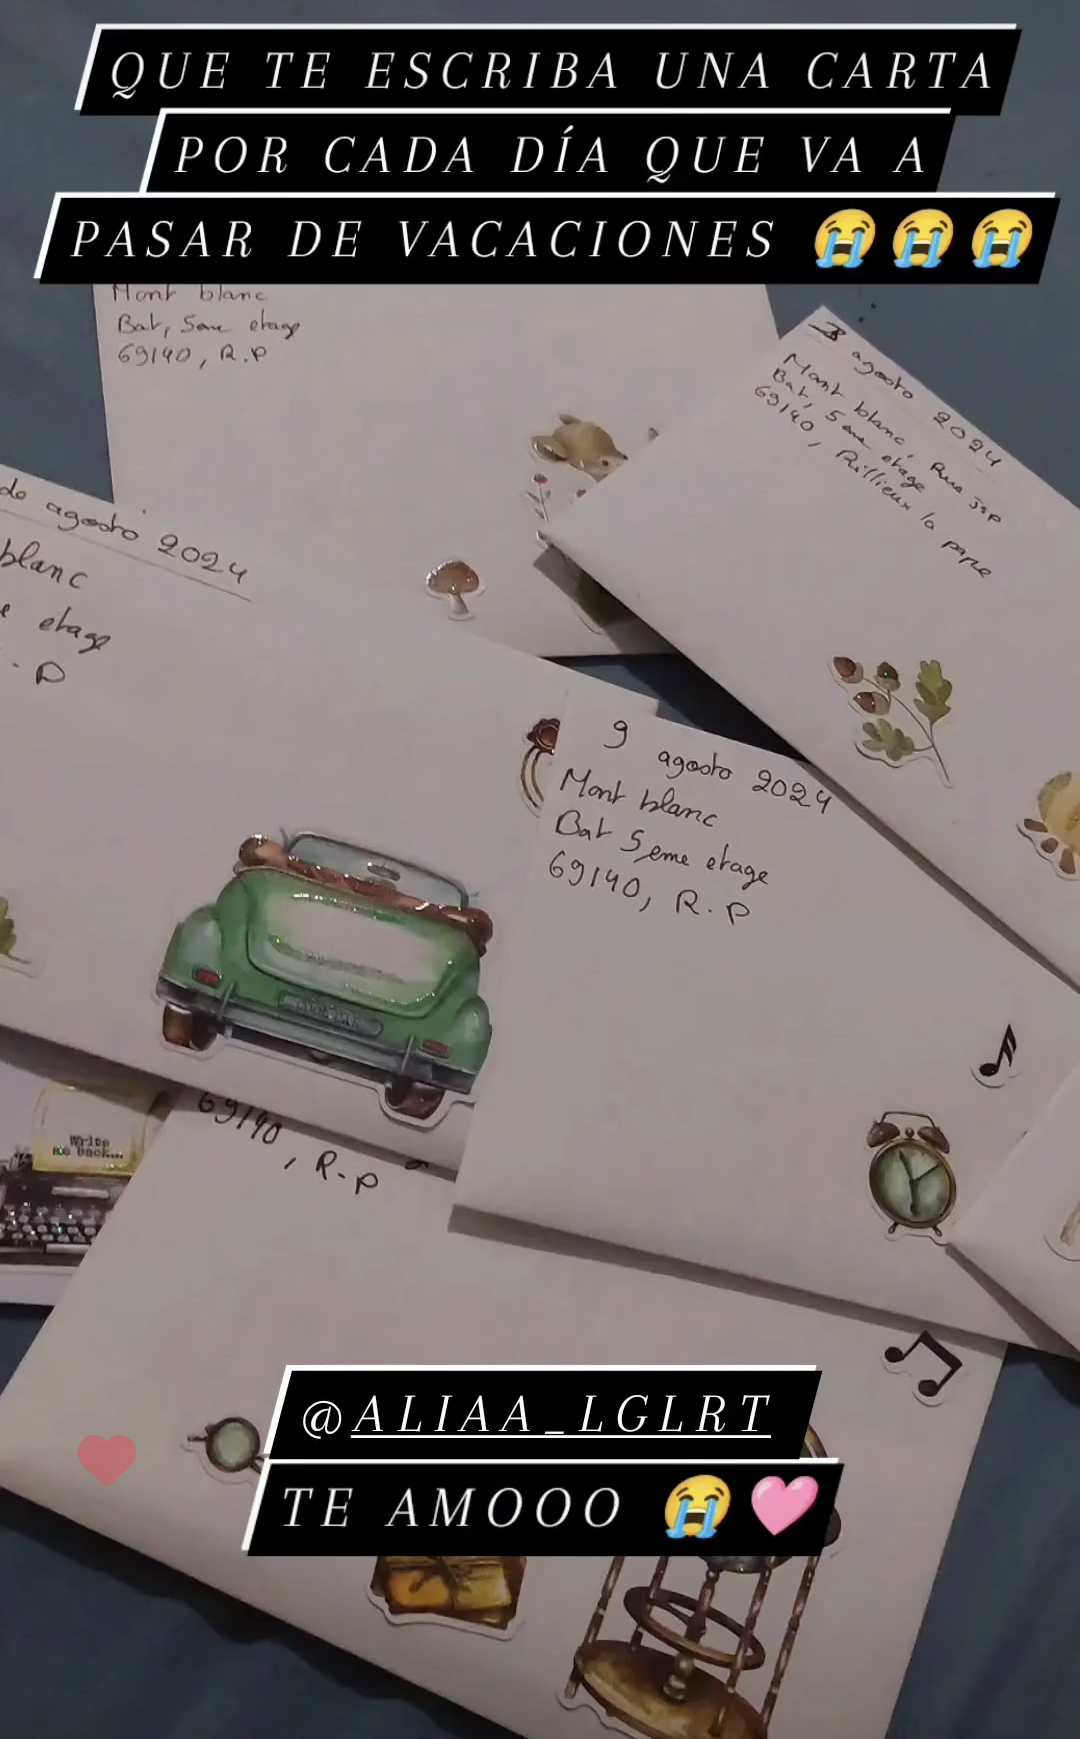 QUE TE ESCRIBA UNA CARTA
POR CADA DÍA QUE VA A
PASAR DE VACACIONES 😭😭😭
Mont blanc
Bat, 5eme etage
69140, R.P
3 agosto 2024
Mont blanc, Rue
Bat, 5eme etage
69140, Rillieux la pape
de agosto 2024
blanc
etage
P
9 agosto 2024
Mont blanc
Bat 5eme etage
69140, R.P
69140, R-P
Write
me back...
@ALIAA_LGLRT
TE AMOOO 😭🩷